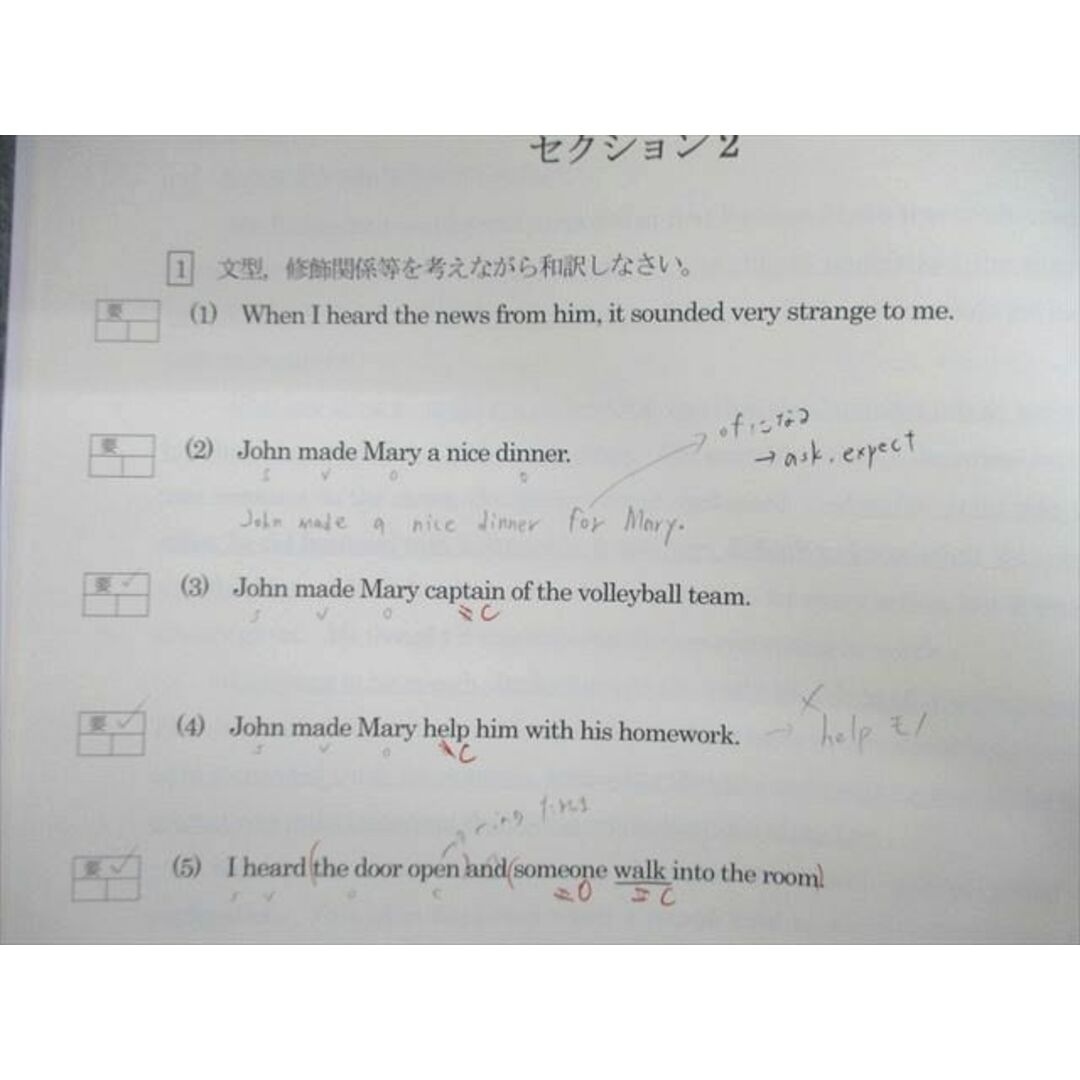 セクション2
1 文型,修飾関係等を考えながら和訳しなさい。
要 (1) When I heard the news from him, it sounded very strange to me.
ofになる
→ ask. expect
要 (2) John made Mary a nice dinner.
S V O O
John made a nice dinner for Mary.
要 ✓ (3) John made Mary captain of the volleyball team.
S V O =C
要 ✓ (4) John made Mary help him with his homework. → help モノ
S V O C
要 ✓ (5) I heard (the door open) and (someone walk into the room).
S V O C =O =C